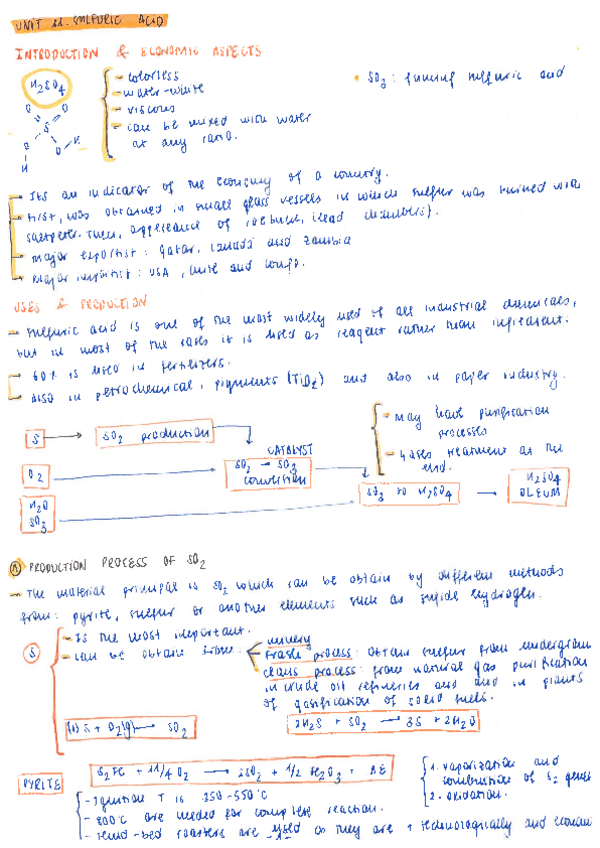 UNIT 11. SULFURIC ACID
INTRODUCTION & ECONOMIC ASPECTS
H2SO4
- colorless
- water-white
- viscous
- can be mixed with water
at any ratio.
• SO3: fuming sulfuric acid
- Its an indicator of the economy of a country.
- First, was obtained in small glass vessels in which sulfur was burned with
saltpeter. Then, appereance of (lead chambers).
- Major exportist: Qatar, Canada and Zambia
- Major importist: USA, Chile and
USES & PRODUCTION
- Sulfuric acid is one of the most widely used of all industrial chemicals,
but in most of the cases it is used as reagent rather than ingredient.
- 60% is used in fertilizers.
- Also in petrochemical, pigments (TiO2) and also in paper industry.
S
SO2 production
O2
CATALYST
SO2 → SO3
conversion
- May have purification
processes
- Gases treatment at the
end.
H2O
SO3
SO3 to H2SO4
H2SO4
OLEUM
① PRODUCTION PROCESS OF SO2
- The material principal is SO2 which can be obtain by different methods
from: pyrite, sulfur or another elements such as sulfide hydrogen.
S
- Is the most important.
- Can be obtain from:
- minery
- Frash process: obtain sulfur from undergroun
- Claus process: from natural gas purification
in crude oil refineries and and in plants
of gasification of solid fuels.
S + O2(g) → SO2
2H2S + SO2 → 3S + 2H2O
PYRITE
S2Fe + 11/4 O2 → 2SO2 + 1/2 Fe2O3 + ΔE
1. vaporization and
combustion of S2 gases
2. oxidation.
- Ignition T is 350-550°C
- 800°C are needed for complete reaction.
- roasters are used as they are + technologically and econom